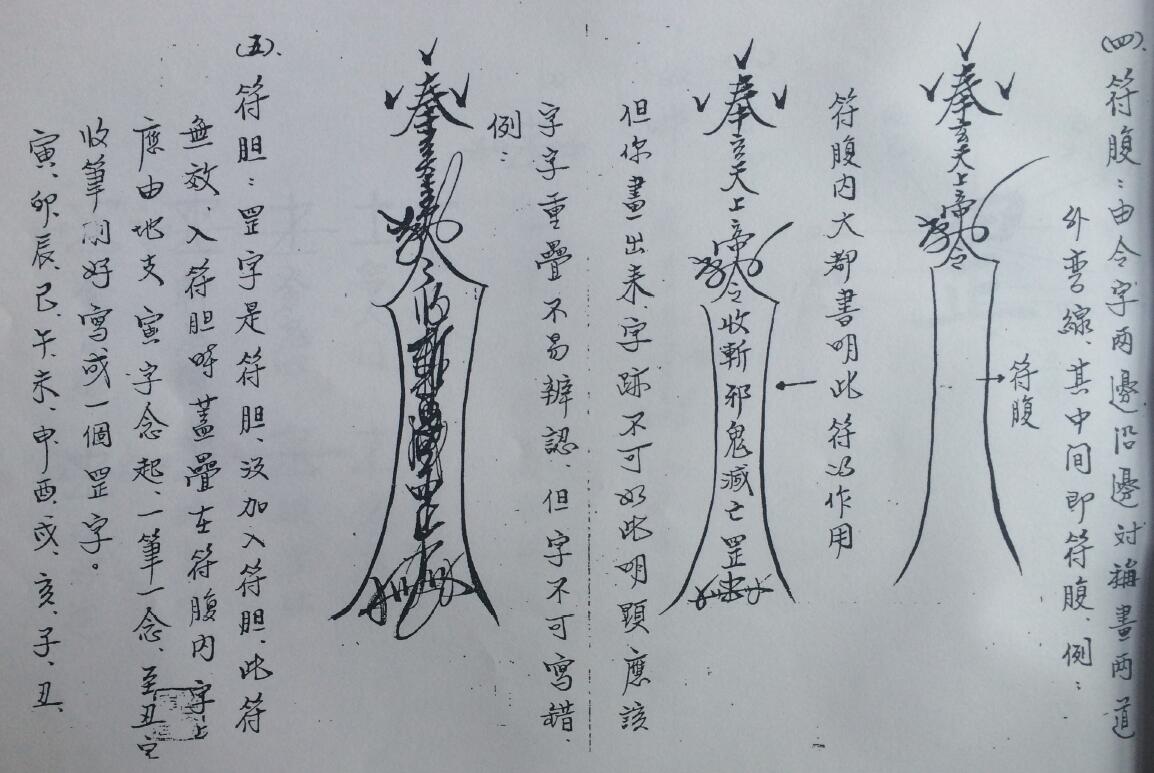 (四)、符腹：由令字两邊沿邊对稱畫两道
外弯線、其中間即符腹、例：
奉玄天上帝 令
符腹
符腹内大都書明此符的作用
奉玄天上帝 令收斬邪鬼滅亡罡
但你畫出来、字跡不可如此明顕應該
字字重疊不易辨認、但字不可寫錯、
例：
奉
(五)、符胆：罡字是符胆、没加入符胆、此符
無效、入符胆時蓋疊在符腹内字上
應由地支寅字念起、一筆一念、至丑字
收筆 好寫成一個罡字。
寅、卯、辰、巳、午、未、申、酉、戌、亥、子、丑、